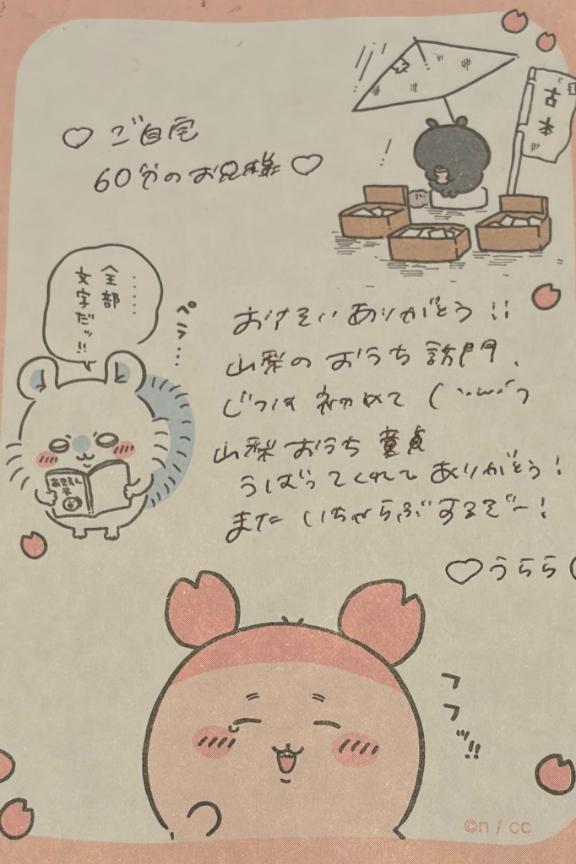 ♡ ご自宅
60分のお兄様 ♡
古本
……
全部
文字だッ!!
ペラ…
おけそいありがとう !!
山梨のおうち訪問、
じつは初めて (
山梨おうち童貞
うばってくれてありがとう!
また いちゃらぶするぞー!
♡うらら
フフッ!!
©n / cc